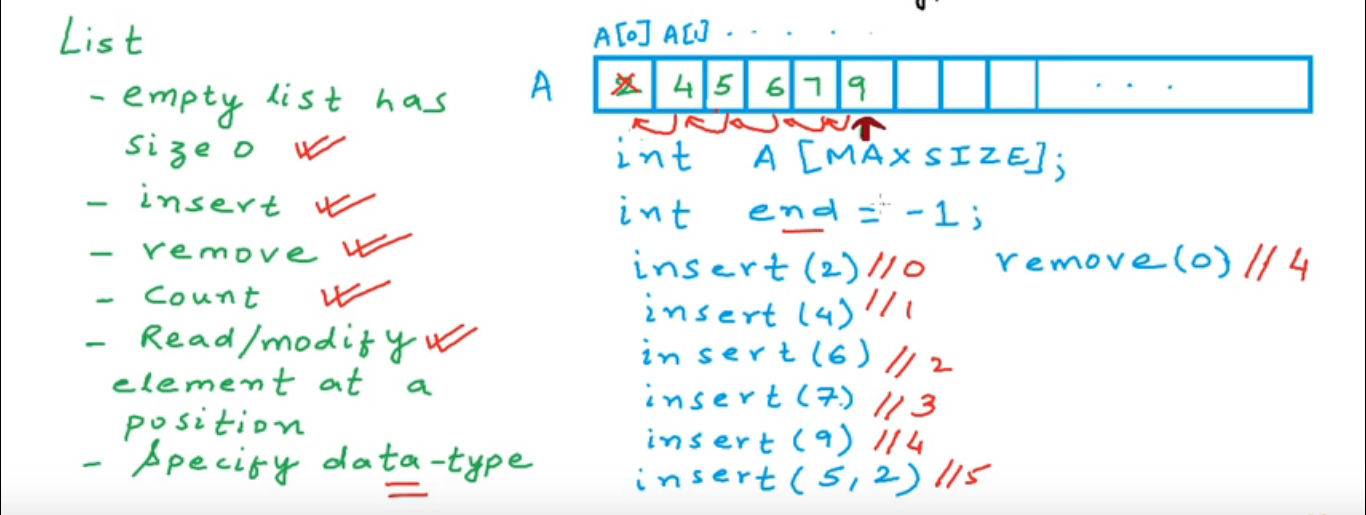 List
- empty list has
size 0
- insert
- remove
- Count
- Read/modify
element at a
position
- Specify data-type
A[0] A[1] . . . . .
A 2 4 5 6 7 9 . . .
int A [MAXSIZE];
int end = -1;
insert (2) //0 remove(0) //4
insert (4) //1
insert (6) //2
insert (7) //3
insert (9) //4
insert (5,2) //5